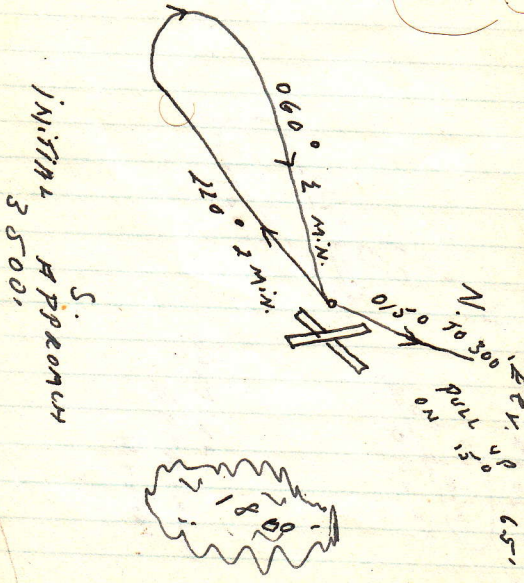 N.
060° 2 MIN.
220° 2 MIN.
015° TO 300'
ELEV. 65'
PULL UP
ON 15°
S.
INITIAL APPROACH
3500'
1800'